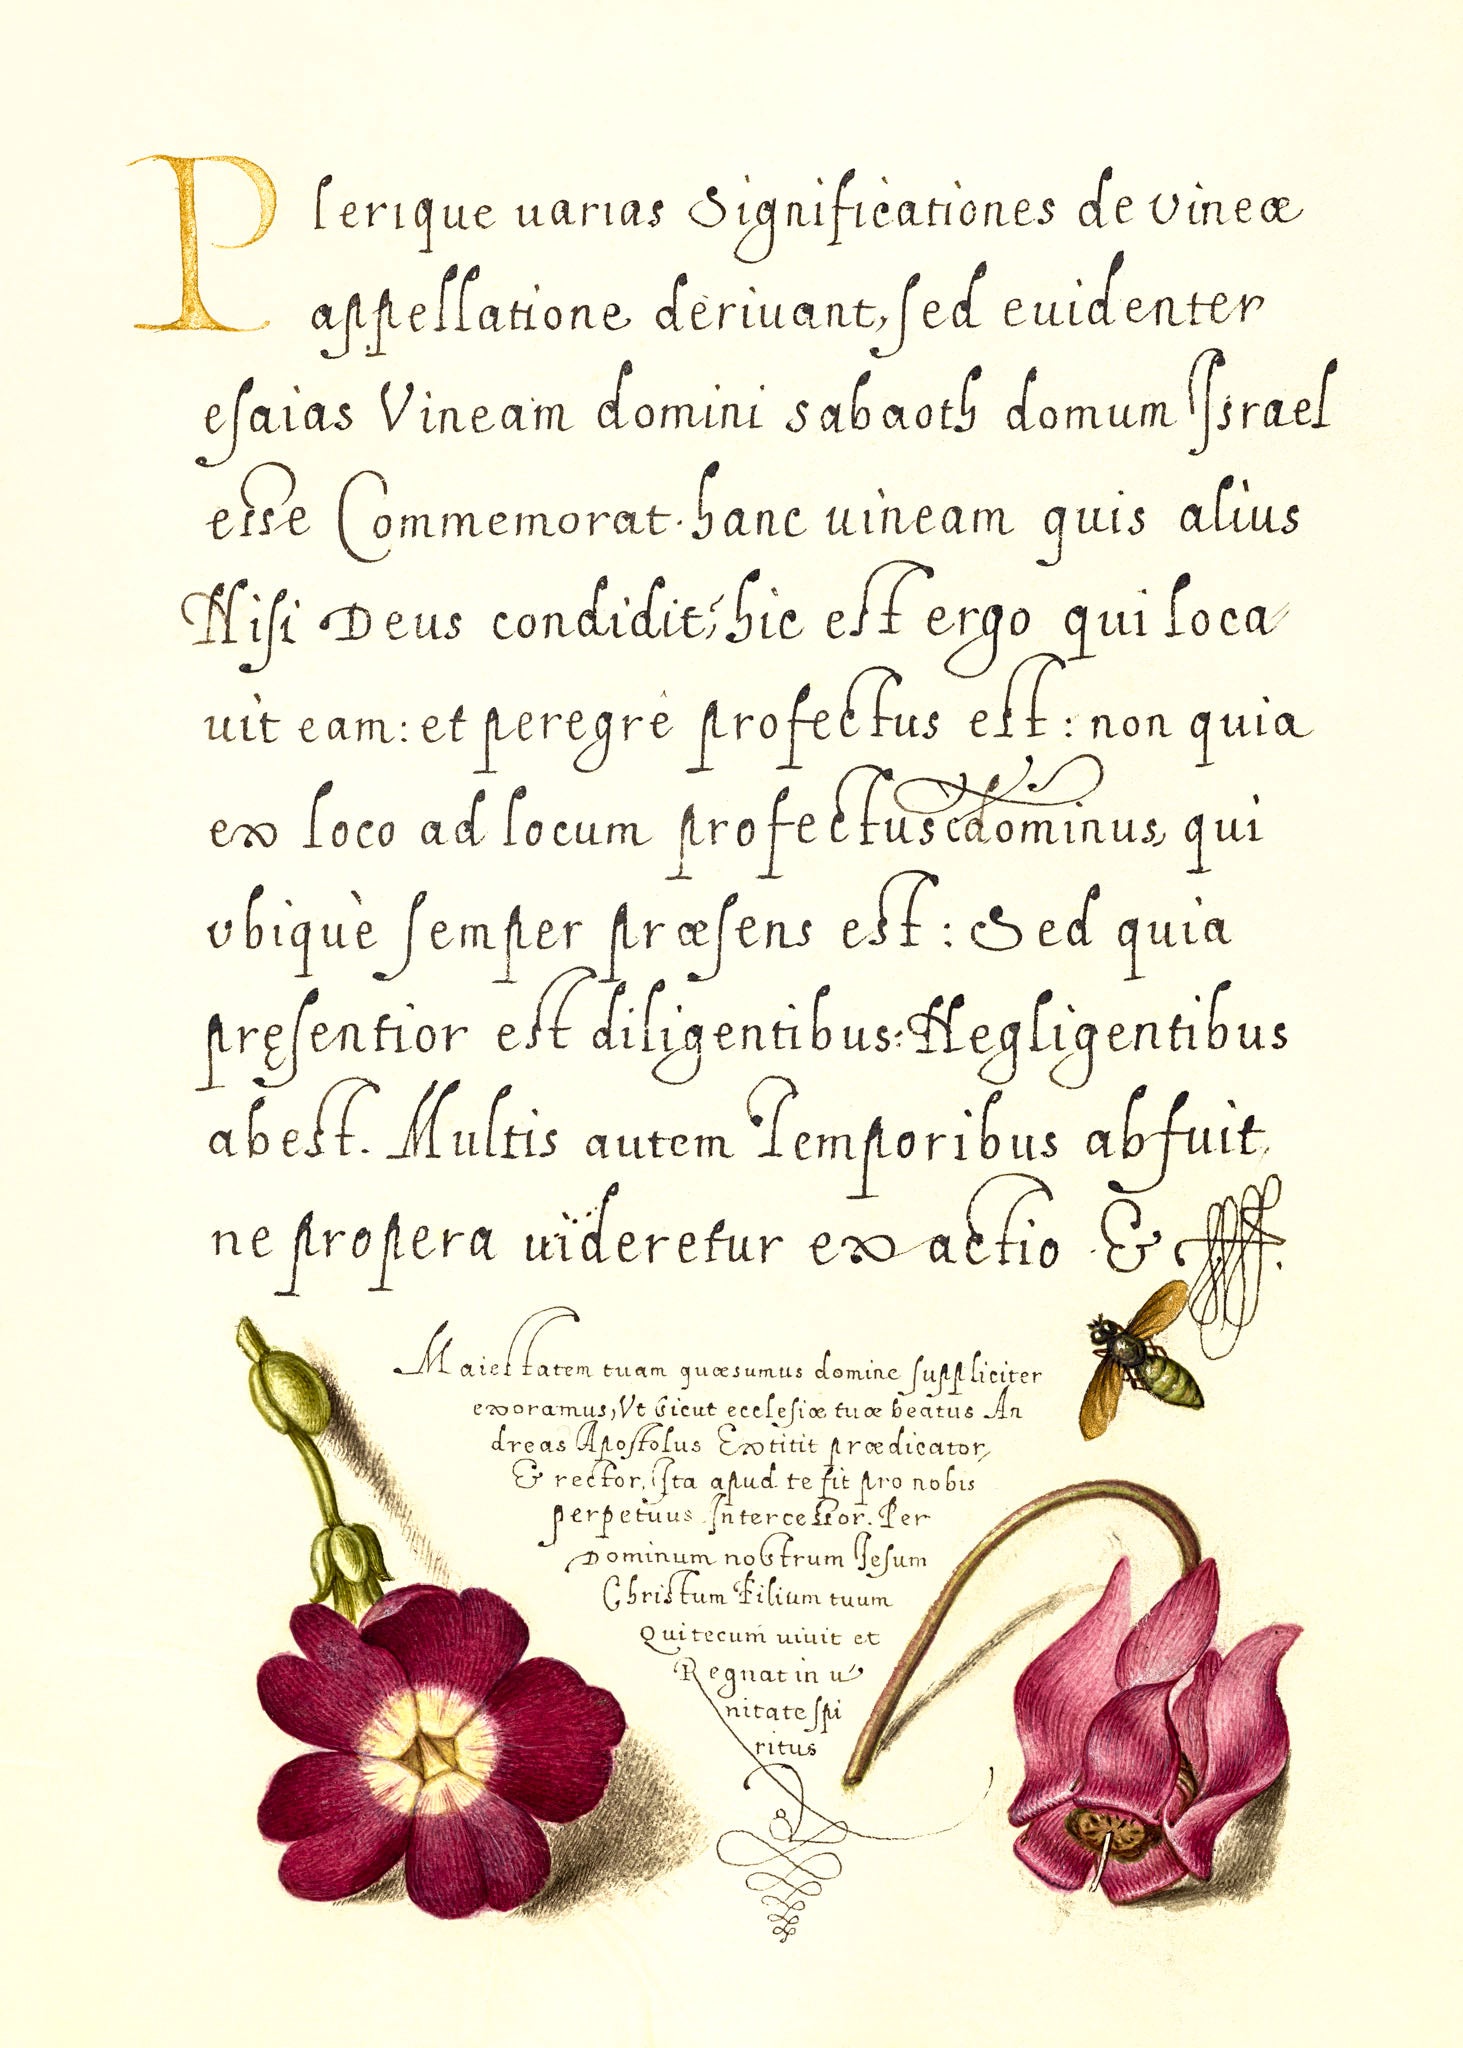 Plerique uarias Significationes de vineæ
appellatione deriuant, sed euidenter
esaias Vineam domini sabaoth domum Israel
esse Commemorat. hanc uineam quis alius
Nisi Deus condidit, hic est ergo qui loca
uit eam: et peregrè profectus est: non quia
ex loco ad locum profectus dominus, qui
vbique semper præsens est: Sed quia
pręsentior est diligentibus: Negligentibus
abest. Multis autem Temporibus abfuit,
ne propera uideretur exactio &
Maiestatem tuam quæsumus domine suppliciter
exoramus, Vt Sicut ecclesiæ tuæ beatus An
dreas Apostolus Extitit prædicator,
& rector, Ita apud te sit pro nobis
perpetuus Intercessor. Per
Dominum nostrum Iesum
Christum Filium tuum
Qui tecum uiuit et
Regnat in u
nitate spi
ritus